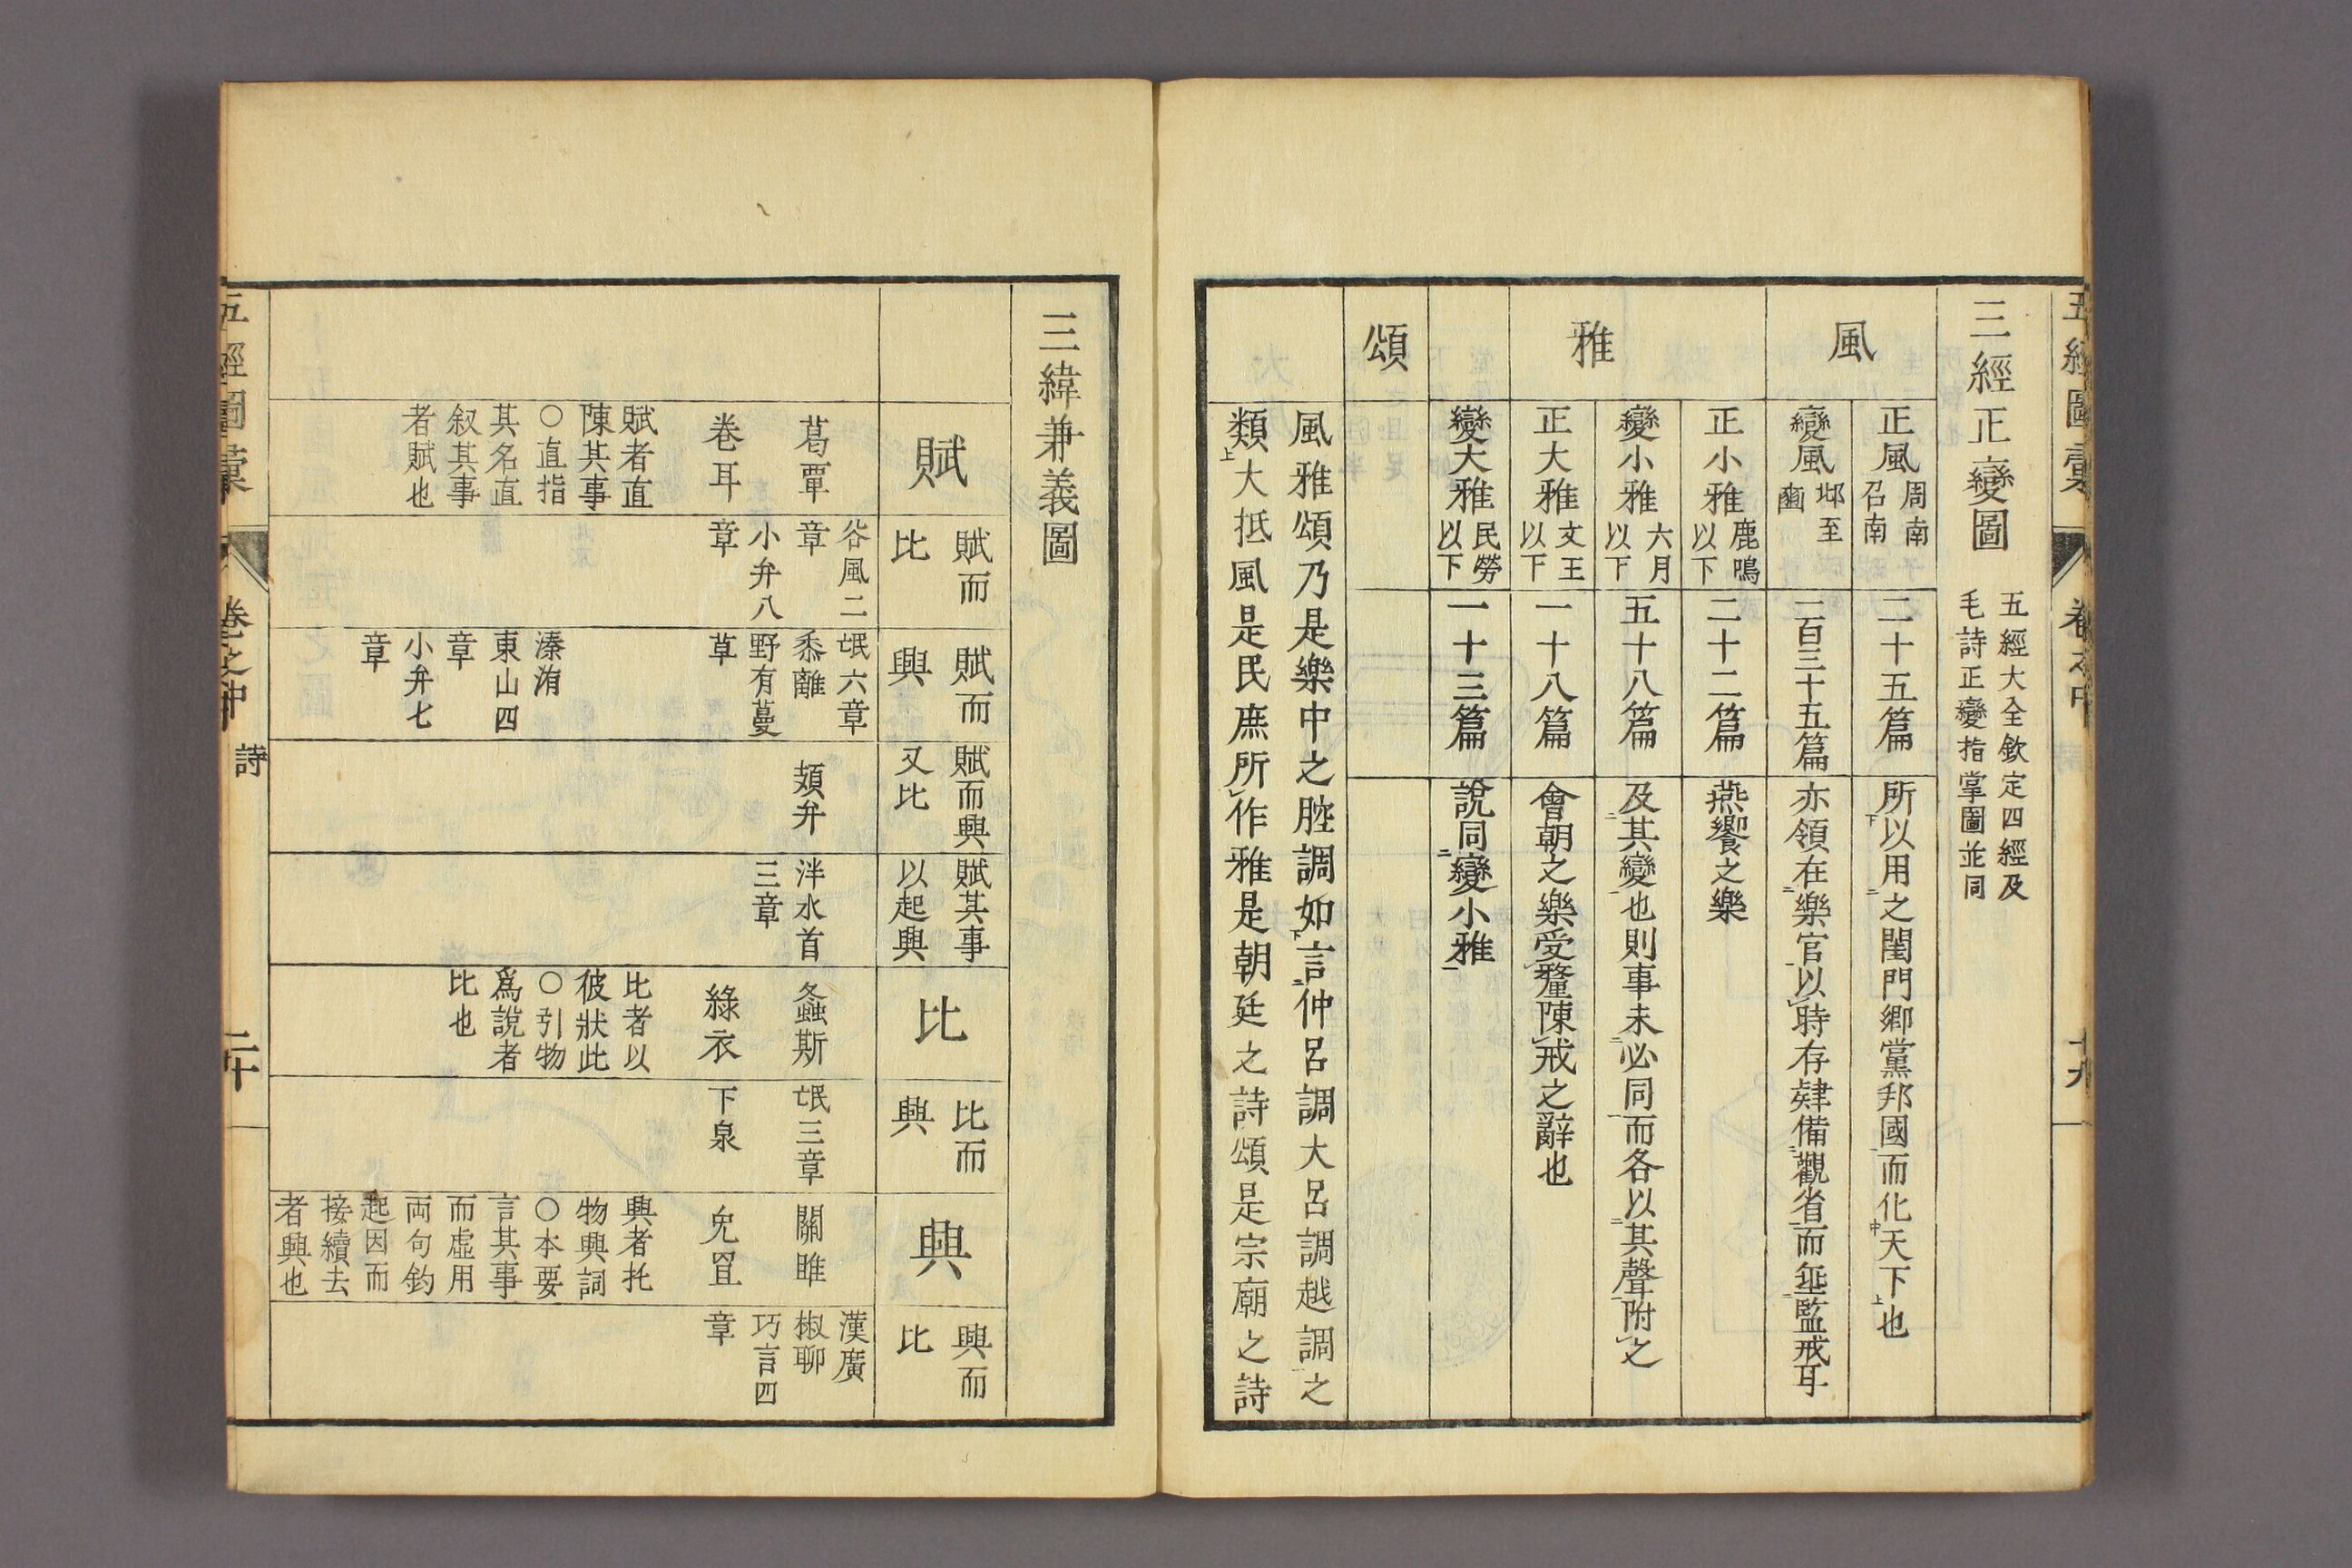 五經圖彙 卷之中 十九
三經正變圖
五經大全欽定四經及
毛詩正變指掌圖並同
風
正風 周南 召南
二十五篇
所以用之閨門鄉黨邦國而化天下也
變風 邶至豳
一百三十五篇
亦領在樂官以時存肄備觀省而垂監戒耳
雅
正小雅 鹿鳴以下
二十二篇
燕饗之樂
變小雅 六月以下
五十八篇
及其變也則事未必同而各以其聲附之
正大雅 文王以下
一十八篇
會朝之樂受釐陳戒之辭也
變大雅 民勞以下
一十三篇
說同變小雅
頌
風雅頌乃是樂中之腔調如言仲呂調大呂調越調之
類大抵風是民庶所作雅是朝廷之詩頌是宗廟之詩
三緯兼義圖
賦
葛覃
卷耳
賦者直
陳其事
○直指
其名直
叙其事
者賦也
賦而
比
谷風二
章
小弁八
章
賦而
興
氓六章
黍離
野有蔓
草
溱洧
東山四
章
小弁七
章
賦而興
又比
頍弁
賦其事
以起興
泮水首
三章
比
螽斯
綠衣
比者以
彼狀此
○引物
爲說者
比也
比而
興
氓三章
下泉
興
關雎
兔罝
興者托
物興詞
○本要
言其事
而虛用
両句釣
起因而
接續去
者興也
興而
比
漢廣
椒聊
巧言四
章
五經圖彙 卷之中 詩 二十